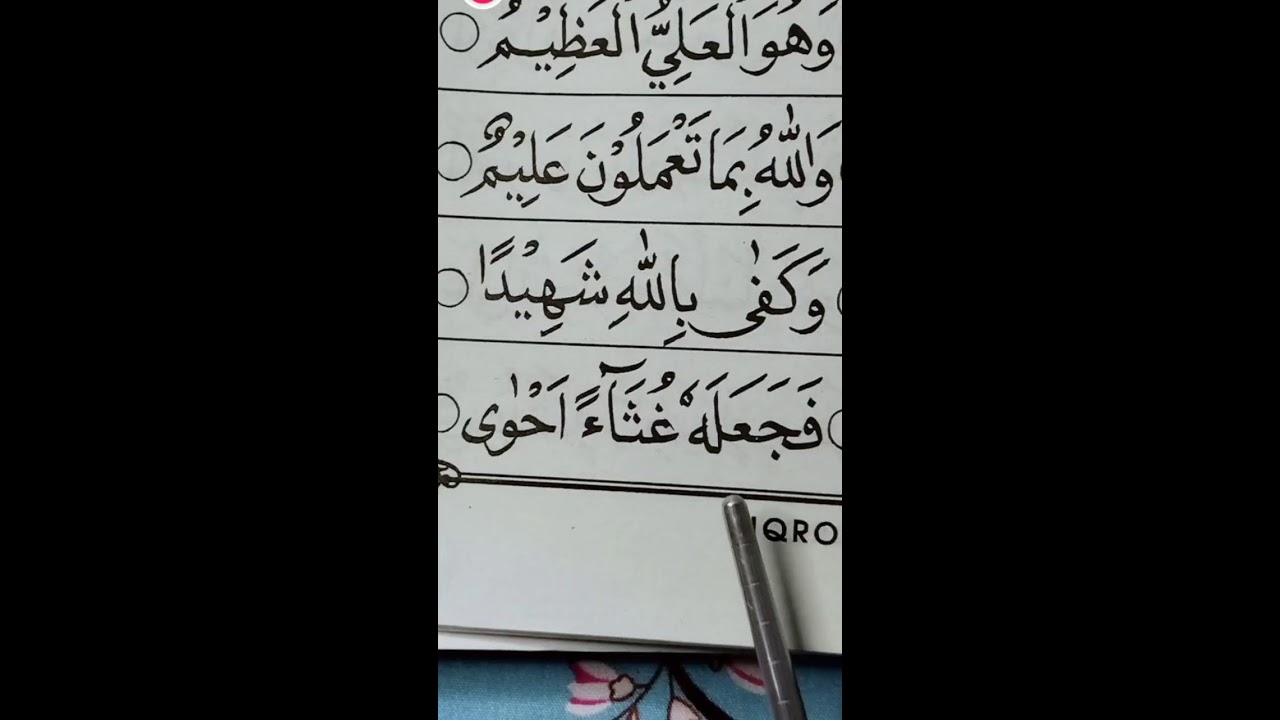 وَهُوَ الْعَلِيُّ الْعَظِيْمُ
وَاللّٰهُ بِمَا تَعْمَلُوْنَ عَلِيْمٌ
وَكَفٰى بِاللّٰهِ شَهِيْدًا
فَجَعَلَهٗ غُثَآءً اَحْوٰى
IQRO